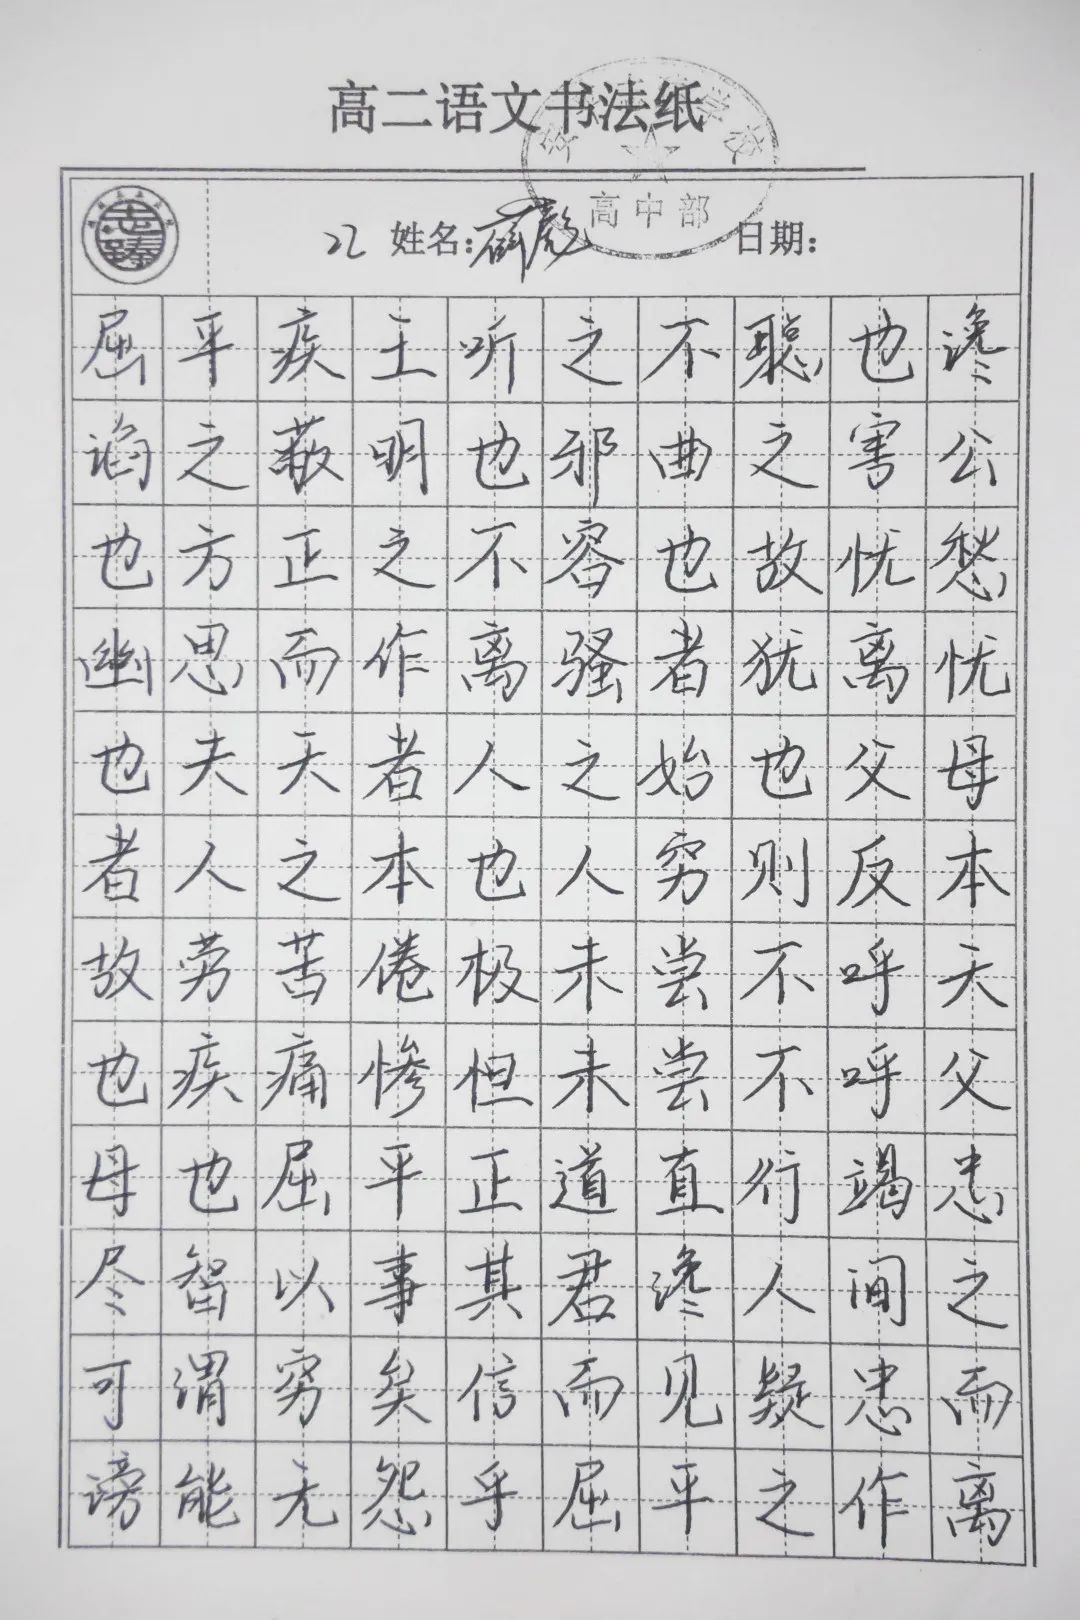 高二语文书法纸
学校
高中部
22 姓名: 日期:
屈平疾王听之不聪也谗
谄之蔽明也邪曲之害公
也方正之不容也故忧愁
幽思而作离骚者犹离忧
也夫天者人之始也父母
者人之本也人穷则反本
故劳苦倦极未尝不呼天
也疾痛惨怛未尝不呼父
母也屈平正道直行竭忠
尽智以事其君谗人间之
可谓穷矣信而见疑忠而
谤能无怨乎屈平之作离